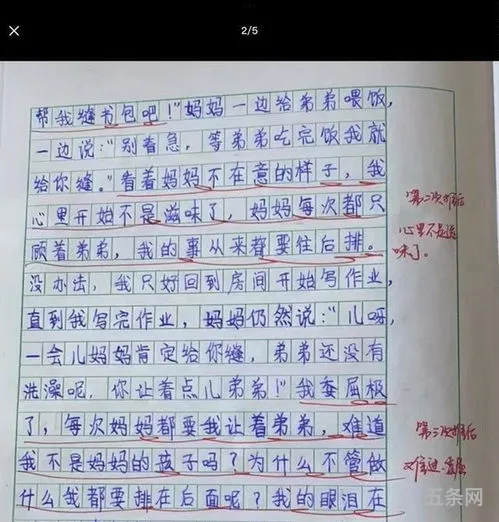 2/5
帮我缝书包吧！"妈妈一边给弟弟喂饭，
一边说："别着急，等弟弟吃完饭我就
给你缝。"看着妈妈不在意的样子，我
心里开始不是滋味了，妈妈每次都只
顾着弟弟，我的事从来都要往后排。
没办法，我只好回到房间开始写作业，
直到我写完作业，妈妈仍然说："儿呀，
一会儿妈妈肯定给你缝，弟弟还没有
洗澡呢，你让着点儿弟弟！"我委屈极
了，每次妈妈都要我让着弟弟，难道
我不是妈妈的孩子吗？为什么不管做
什么我都要排在后面呢？我的眼泪在
心里不是滋
味了。
五条网